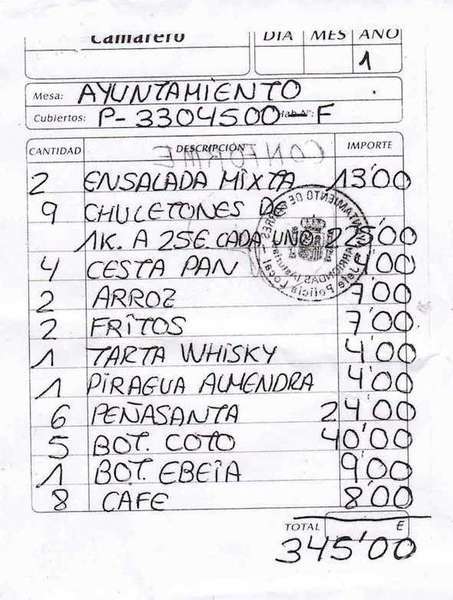 Camarero DIA MES AÑO
1
Mesa: AYUNTAMIENTO
Cubiertos: P-3304500-F Hab. Nº:
CANTIDAD DESCRIPCIÓN IMPORTE
CONFORME
2 ENSALADA MIXTA 13'00
9 CHULETONES DE
1K. A 25E CADA UNO 225'00
4 CESTA PAN 4'00
2 ARROZ 7'00
2 FRITOS 7'00
1 TARTA WHISKY 4'00
1 PIRAGUA ALMENDRA 4'00
6 PEÑASANTA 24'00
5 BOT. COTO 40'00
1 BOT. EBEIA 9'00
8 CAFE 8'00
TOTAL E
345'00
AYUNTAMIENTO DE
Policía Local